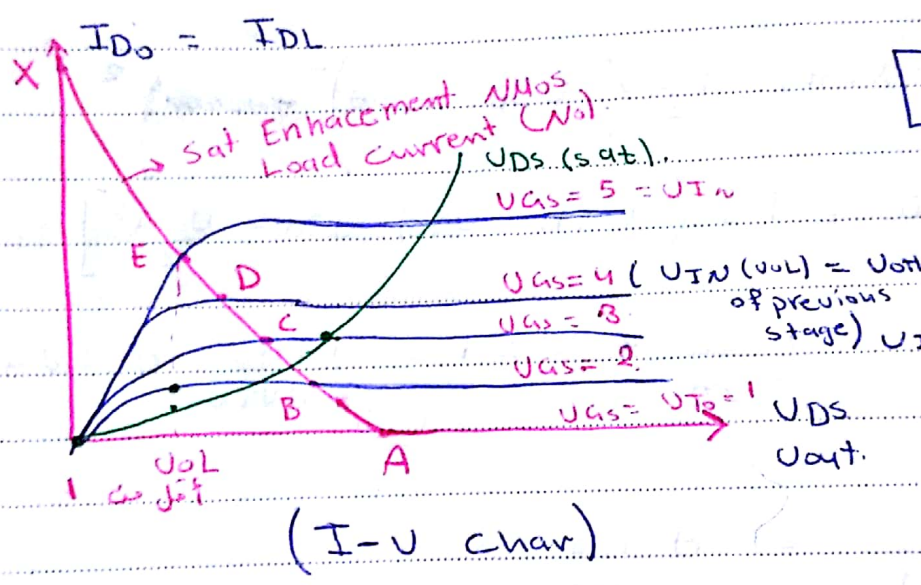 I_Do = I_DL
X
Sat Enhacement NMOS
Load current (No)
V_DS (sat).
V_GS = 5 = V_IN
E
D
V_GS = 4 ( V_IN (VOL) = VOH
of previous
stage)
C
V_GS = 3
V_GS = 2
B
V_GS = V_To = 1
V_DS
Vout.
VOL
A
1
(I-V char)